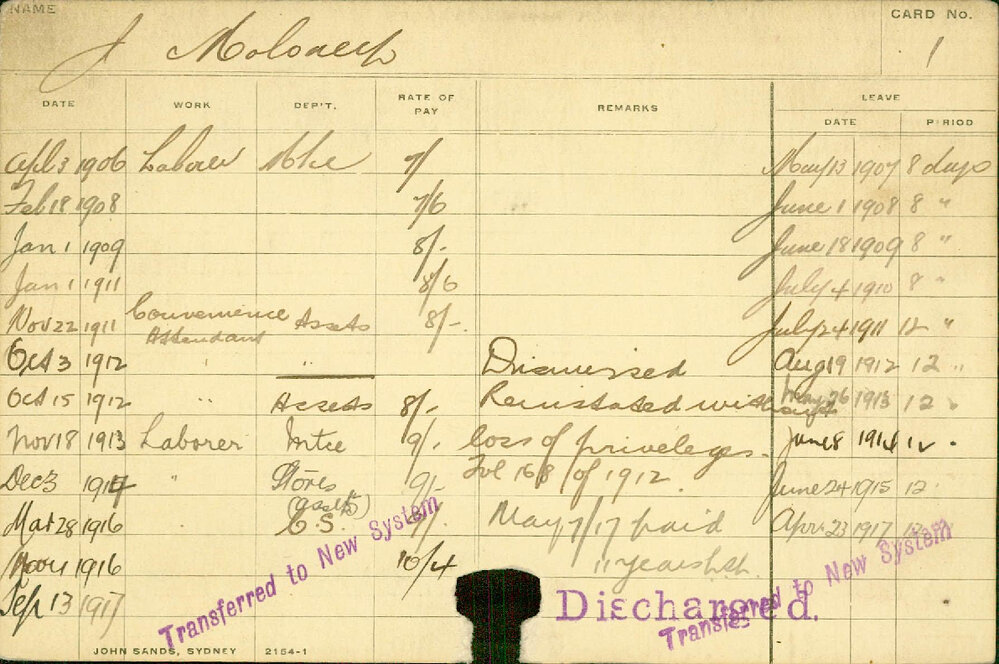 NAME
CARD No.
J Moloney
1
DATE WORK DEP'T. RATE OF PAY REMARKS LEAVE
DATE PERIOD
Apl 3 1906 Laborer Mtce 7/- May 13 1907 8 days
Feb 18 1908 7/6 June 1 1908 8 "
Jan 1 1909 8/- June 18 1909 8 "
Jan 1 1911 8/6 July 4 1910 8 "
Nov 22 1911 Convenience Attendant Assets 8/- July 24 1911 12 "
Oct 3 1912 " " Dismissed Aug 19 1912 12 "
Oct 15 1912 " Assets 8/- Reinstated without 26 1913 12 "
Nov 18 1913 Laborer Mtce 9/- loss of privileges. June 8 1914 12 "
Dec 3 1914 " Stores 9/- 168/ of 1912 June 24 1915 12 "
Mar 28 1916 " C.S. 9/- May 7/17 paid Apr 23 1917
Nov 1 1916 10/4 11 years
Sep 13 1917 Discharged.
Transferred to New System
Transferred to New System
JOHN SANDS, SYDNEY 2154-1